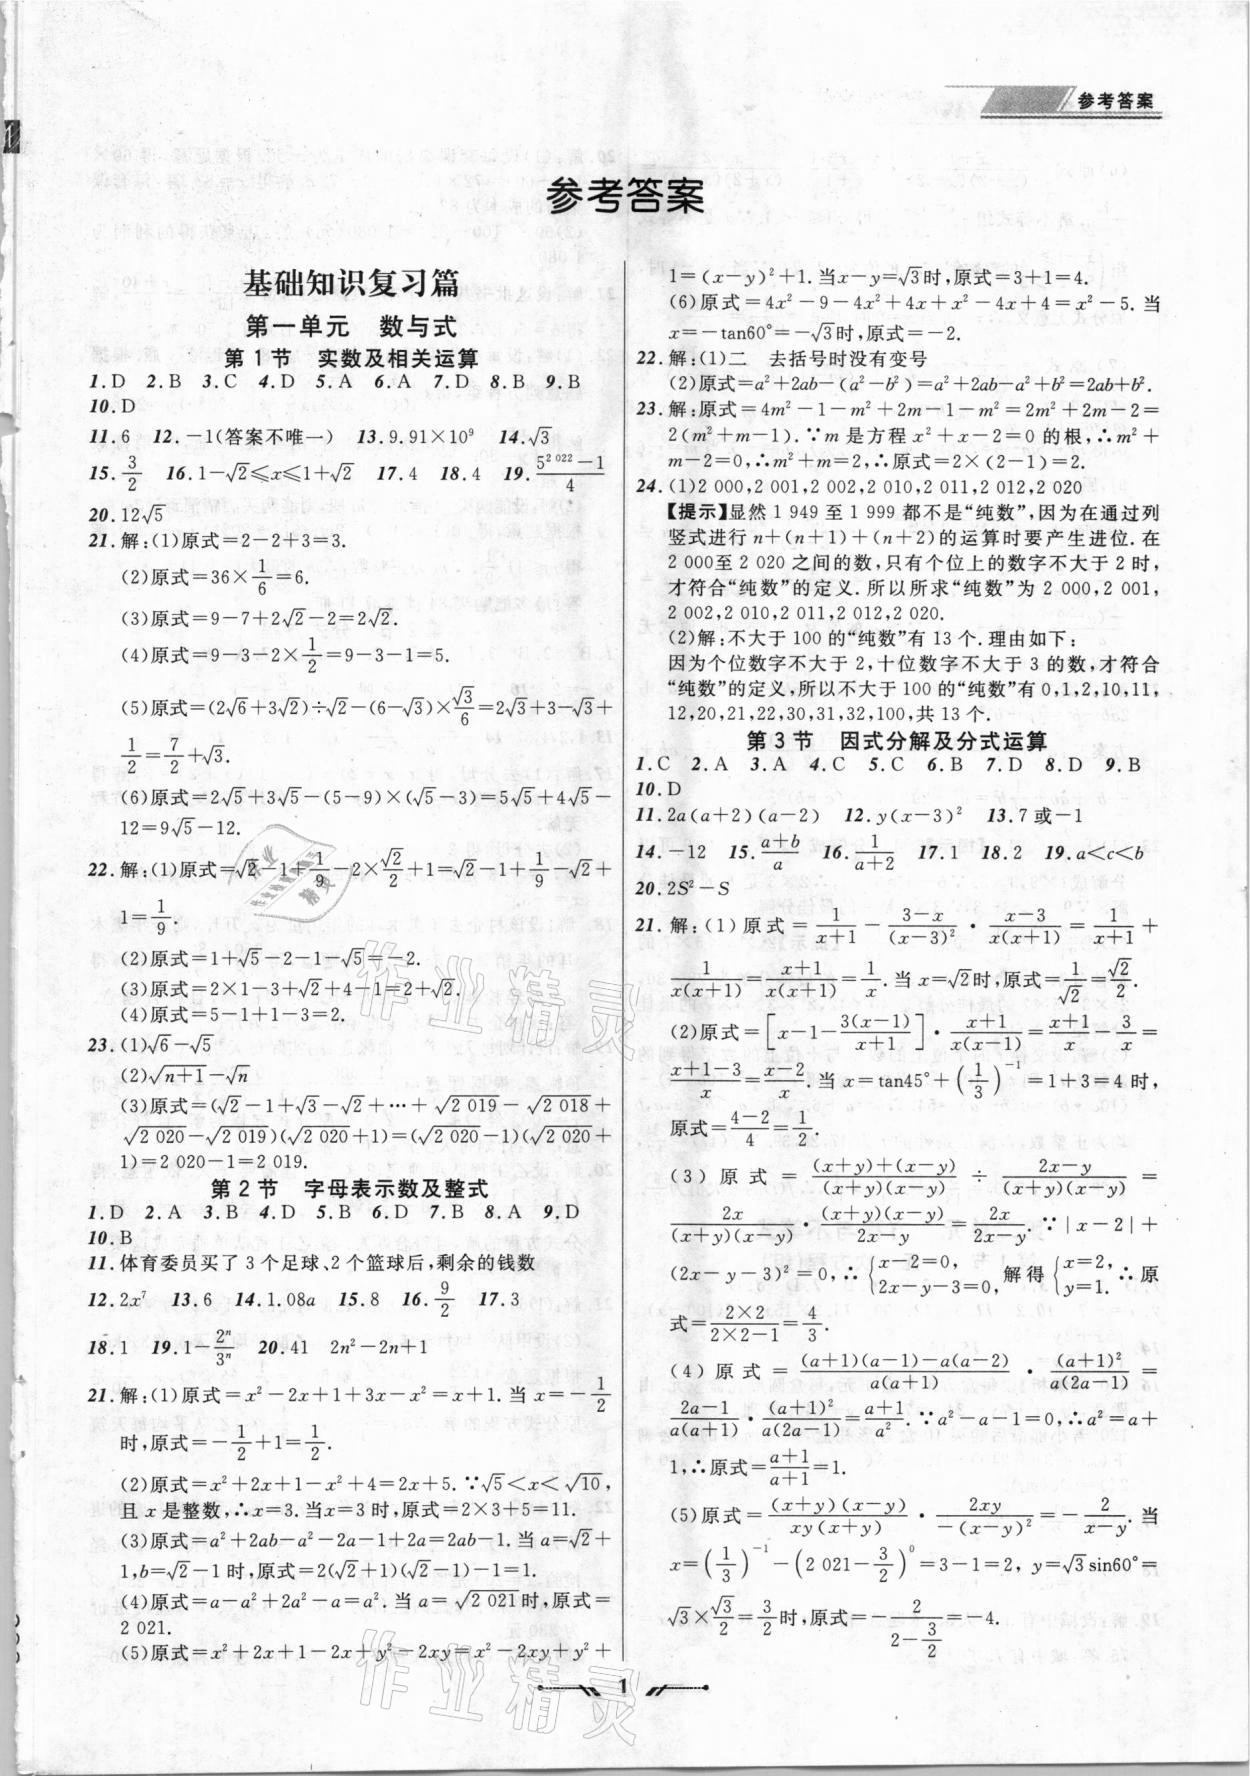 参考答案
参考答案
基础知识复习篇
第一单元　数与式
第1节　实数及相关运算
1.D　2.B　3.C　4.D　5.A　6.A　7.D　8.B　9.B
10.D
11.6　12.-1(答案不唯一)　13.9.91×10⁹　14.√3
15.3/2　16.1-√2≤x≤1+√2　17.4　18.4　19.(5^{2 022}-1)/4
20.12√5
21.解:(1)原式=2-2+3=3.
(2)原式=36×1/6=6.
(3)原式=9-7+2√2-2=2√2.
(4)原式=9-3-2×1/2=9-3-1=5.
(5)原式=(2√6+3√2)÷√2-(6-√3)×√3/6=2√3+3-√3+
1/2=7/2+√3.
(6)原式=2√5+3√5-(5-9)×(√5-3)=5√5+4√5-
12=9√5-12.
22.解:(1)原式=√2-1+1/9-2×√2/2+1=√2-1+1/9-√2+
1=1/9.
(2)原式=1+√5-2-1-√5=-2.
(3)原式=2×1-3+√2+4-1=2+√2.
(4)原式=5-1+1-3=2.
23.(1)√6-√5
(2)√(n+1)-√n
(3)原式=(√2-1+√3-√2+…+√(2 019)-√(2 018)+
√(2 020)-√(2 019))(√(2 020)+1)=(√(2 020)-1)(√(2 020)+
1)=2 020-1=2 019.
第2节　字母表示数及整式
1.D　2.A　3.B　4.D　5.B　6.D　7.B　8.A　9.D
10.B
11.体育委员买了3个足球、2个篮球后,剩余的钱数
12.2x⁷　13.6　14.1.08a　15.8　16.9/2　17.3
18.1　19.1-2ⁿ/3ⁿ　20.41　2n²-2n+1
21.解:(1)原式=x²-2x+1+3x-x²=x+1.当x=-1/2
时,原式=-1/2+1=1/2.
(2)原式=x²+2x+1-x²+4=2x+5.∵√5<x<√10,
且x是整数,∴x=3.当x=3时,原式=2×3+5=11.
(3)原式=a²+2ab-a²-2a-1+2a=2ab-1.当a=√2
+1,b=√2-1时,原式=2(√2+1)(√2-1)-1=1.
(4)原式=a-a²+2a²-a=a².当a=√(2 021)时,原式=
2 021.
(5)原式=x²+2x+1-2x+y²-2xy=x²-2xy+y²+
1=(x-y)²+1.当x-y=√3时,原式=3+1=4.
(6)原式=4x²-9-4x²+4x+x²-4x+4=x²-5.当
x=-tan60°=-√3时,原式=-2.
22.解:(1)二　去括号时没有变号
(2)原式=a²+2ab-(a²-b²)=a²+2ab-a²+b²=2ab+b².
23.解:原式=4m²-1-m²+2m-1-m²=2m²+2m-2=
2(m²+m-1).∵m是方程x²+x-2=0的根,∴m²+
m-2=0,∴m²+m=2,∴原式=2×(2-1)=2.
24.(1)2 000,2 001,2 002,2 010,2 011,2 012,2 020
【提示】显然1 949至1 999都不是“纯数”,因为在通过列
竖式进行n+(n+1)+(n+2)的运算时要产生进位.在
2 000至2 020之间的数,只有个位上的数字不大于2时,
才符合“纯数”的定义.所以所求“纯数”为2 000,2 001,
2 002,2 010,2 011,2 012,2 020.
(2)解:不大于100的“纯数”有13个.理由如下:
因为个位数字不大于2,十位数字不大于3的数,才符合
“纯数”的定义,所以不大于100的“纯数”有0,1,2,10,11,
12,20,21,22,30,31,32,100,共13个.
第3节　因式分解及分式运算
1.C　2.A　3.A　4.C　5.C　6.B　7.D　8.D　9.B
10.D
11.2a(a+2)(a-2)　12.y(x-3)²　13.7或-1
14.-12　15.(a+b)/a　16.1/(a+2)　17.1　18.2　19.a<c<b
20.2S²-S
21.解:(1)原式=1/(x+1)-(3-x)/(x-3)²·(x-3)/(x(x+1))=1/(x+1)+
1/(x(x+1))=(x+1)/(x(x+1))=1/x.当x=√2时,原式=1/√2=√2/2.
(2)原式=[x-1-3(x-1)/(x+1)]·(x+1)/(x(x-1))=(x+1)/x-3/x=
(x+1-3)/x=(x-2)/x.当x=tan45°+(1/3)⁻¹=1+3=4时,
原式=(4-2)/4=1/2.
(3)原式=((x+y)+(x-y))/((x+y)(x-y))÷(2x-y)/((x+y)(x-y))=
2x/((x+y)(x-y))·((x+y)(x-y))/(2x-y)=2x/(2x-y).∵|x-2|+
(2x-y-3)²=0,∴{x-2=0,2x-y-3=0,解得{x=2,y=1.∴原
式=(2×2)/(2×2-1)=4/3.
(4)原式=((a+1)(a-1)-a(a-2))/(a(a+1))·(a+1)²/(a(2a-1))=
(2a-1)/(a(a+1))·(a+1)²/(a(2a-1))=(a+1)/a².∵a²-a-1=0,∴a²=a+
1,∴原式=(a+1)/(a+1)=1.
(5)原式=((x+y)(x-y))/(xy(x+y))·2xy/(-(x-y)²)=-2/(x-y).当
x=(1/3)⁻¹-(2 021-3/2)⁰=3-1=2,y=√3sin60°=
√3×√3/2=3/2时,原式=-2/(2-3/2)=-4.
1
作业精灵
作业精灵